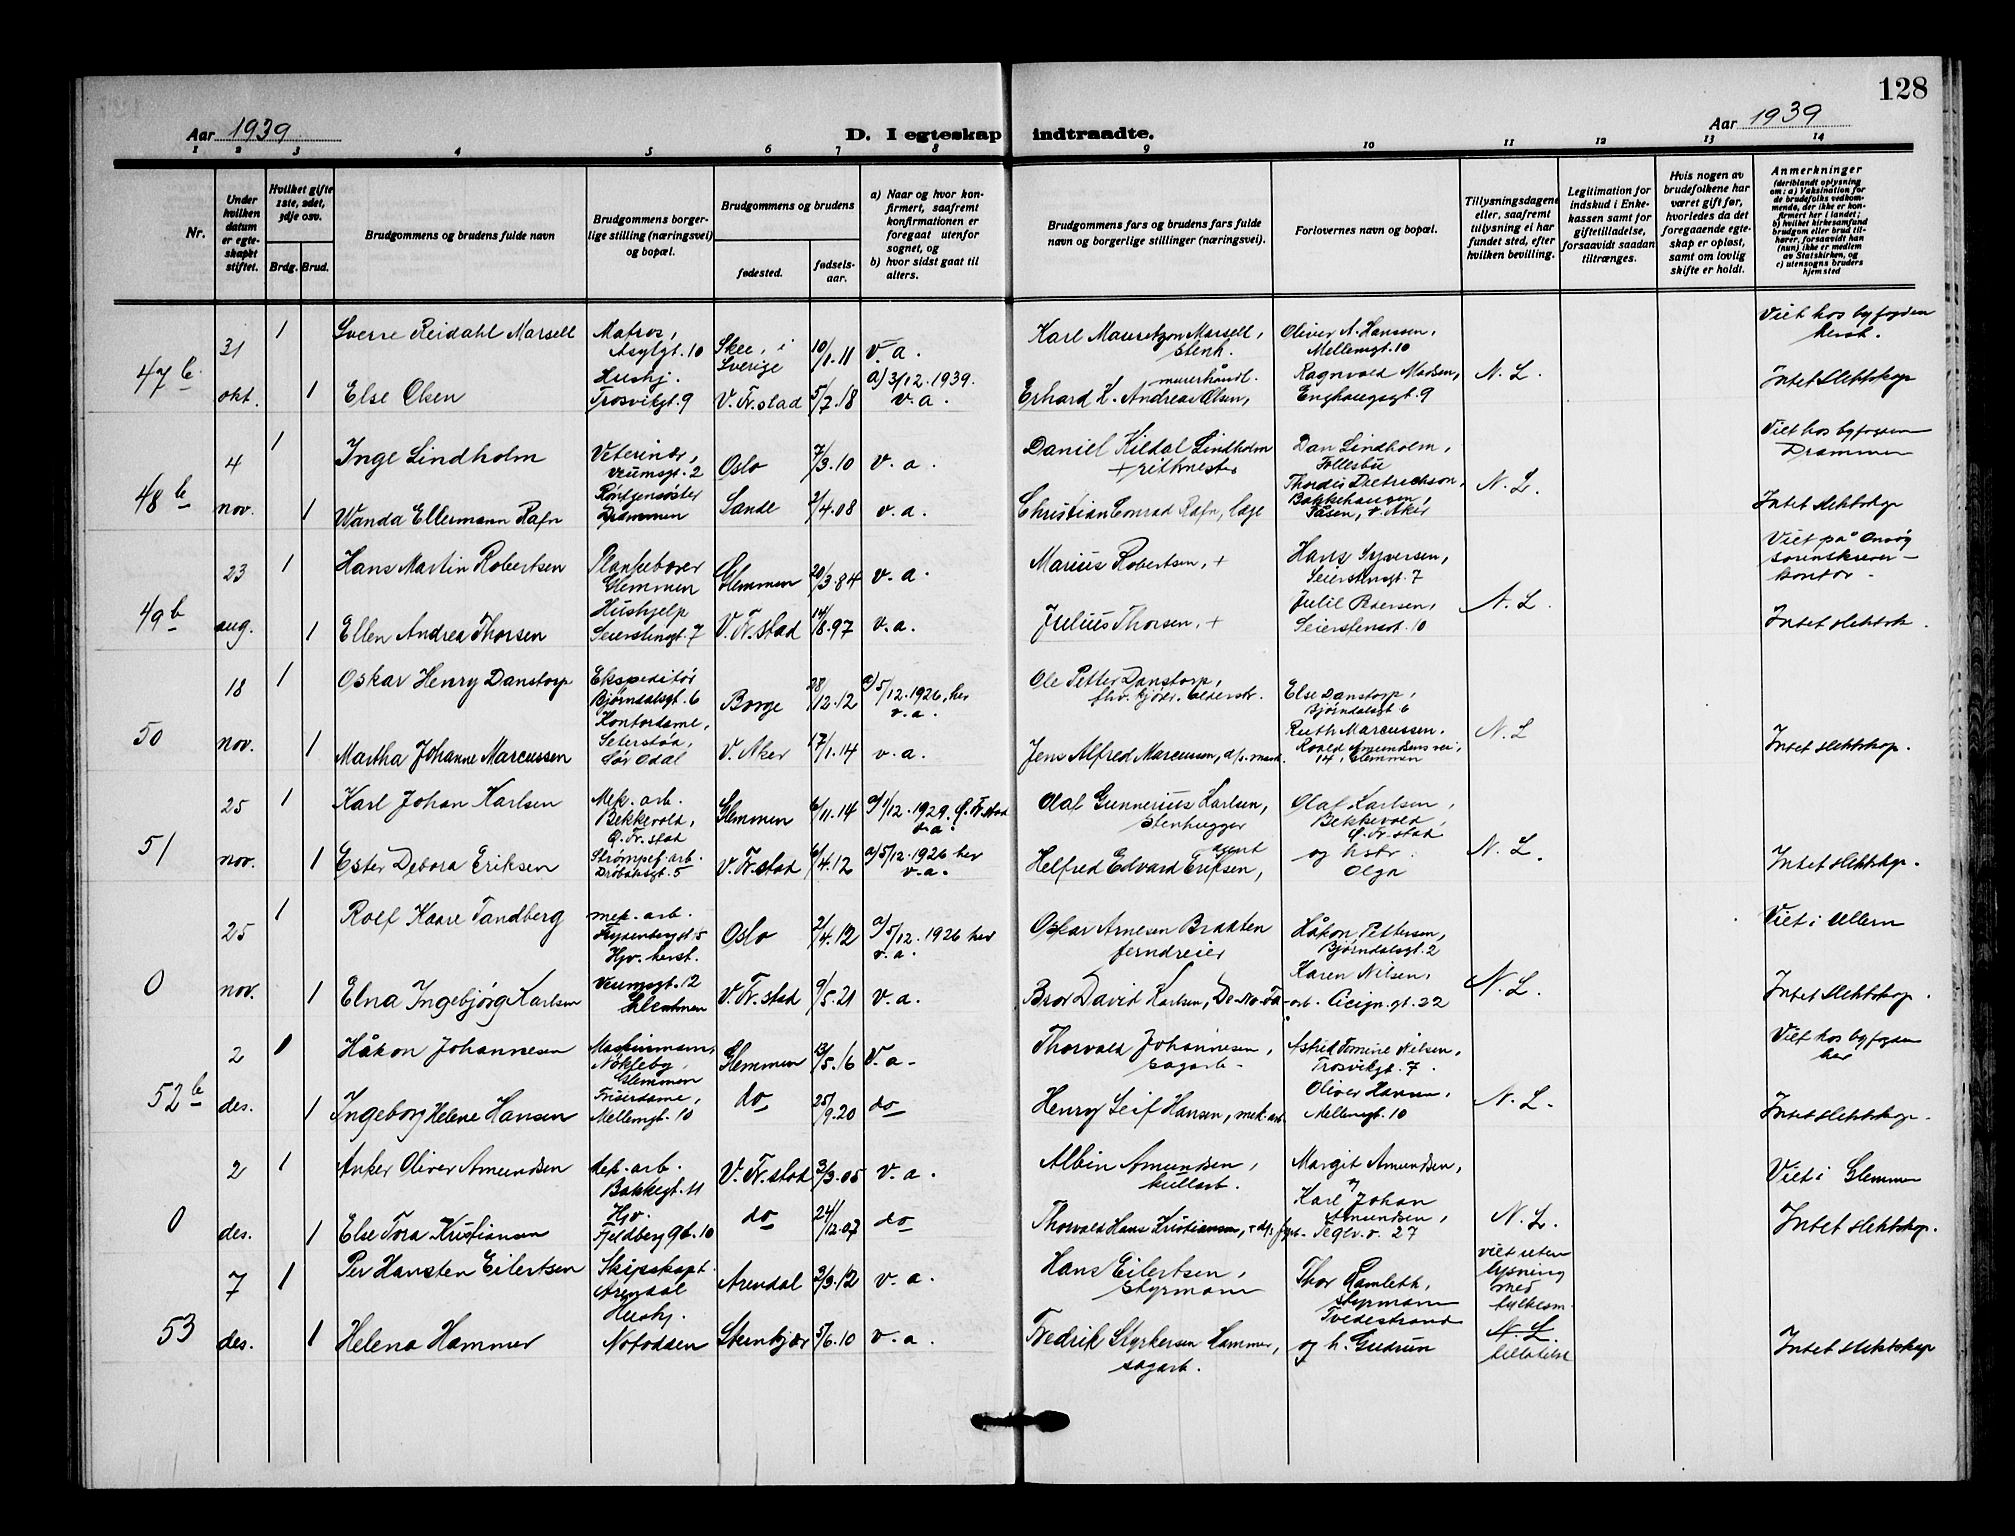 128
Aar 1939
D. I egteskap indtraadte.
Aar 1939
1 2 3 4 5 6 7 8 9 10 11 12 13 14
Nr.
Under hvilken datum er egteskapet stiftet.
Hvilket gifte 1ste, 2det, 3dje osv.
Brdg. Brud.
Brudgommens og brudens fulde navn
Brudgommens borgerlige stilling (næringsvei) og bopæl.
Brudgommens og brudens
fødested.
fødselsaar.
a) Naar og hvor konfirmert, saafremt konfirmationen er foregaat utenfor sognet, og
b) hvor sidst gaat til alters.
Brudgommens fars og brudens fars fulde navn og borgerlige stillinger (næringsvei).
Forlovernes navn og bopæl.
Tillysningsdagene eller, saafremt tillysning ei har fundet sted, efter hvilken bevilling.
Legitimation for indskud i Enkekassen samt for giftetilladelse, forsaavidt saadan tiltrænges.
Hvis nogen av brudefolkene har været gift før, hvorledes da det foregaaende egteskap er opløst, samt om lovlig skifte er holdt.
Anmerkninger
(deriblandt oplysning om: a) Vaksination for de brudefolks vedkommende, der ikke er konfirmert her i landet; b) hvilket kirkesamfund brudgom eller brud tilhører, forsaavidt han (hun) ikke er medlem av Statskirken, og c) utensogns bruders hjemsted
47b
31 okt.
1
Sverre Reidahl Marsell
Matros, Asylgt. 10
Skee, i Sverige
10/1.11
v. a.
Karl Mauritzon Marsell, stenh.
Oliver A. Hanssen, Mellemgt. 10
N. L.
Viet hos byfogden herst.
1
Else Olsen
Hushj. Trosvikgt. 9
V. Fr.stad
5/7.18
a) 3/12.1939. v. a.
Erhard H. Andreas Olsen, murerhåndl.
Ragnvald Madsen, Enghaugsgt. 9
Intet slektskap
48b
4 nov.
1
Inge Lindholm
Veterinær, Veumsgt. 2
Oslo
7/3.10
v. a.
Daniel Kildal Lindholm + ritmester
Dan Lindholm, Follesbu
N. L.
Viet hos byfogden Drammen
1
Wanda Ellermann Rafn
Röntgensöster Drammen
Sande
2/4.08
v. a.
Christian Conrad Rafn, læge
Thordis Dietrichson, Bakkehaugen, Tåsen, v. Aker
Intet slektskap
49b
23 aug.
1
Hans Martin Robertsen
Plankebærer Glemmen
Glemmen
20/3.84
v. a.
Marius Robertsen, +
Hans Syversen, Seierstensgt. 7
N. L.
Viet på Onsøy sorenskriverkontor.
1
Ellen Andrea Thorsen
Hushjelp Seierstensgt. 7
V. Fr.stad
14/8.97
v. a.
Julius Thorsen, +
Julil Pedersen, Seierstensgt. 10
Intet slektsk.
50
18 nov.
1
Oskar Henry Danstorp
Ekspeditør Bjørndalsgt. 6
Borge
28/12.12
a) 5/12.1926. her v. a.
Ole Petter Danstorp,
Else Danstorp, Bjørndalsgt 6
N. L
1
Martha Johanne Marcussen
Kontordame, Seterstøa, Sør Odal
V. Aker
17/1.14
v. a.
Jens Alfred Marcussen,
Ruth Marcussen, Roald Amundsens vei, 14, Glemmen
Intet slektskap.
51
25 nov.
1
Karl Johan Karlsen
Mek. arb. Bekkevold, Ø. Fr. stad
Glemmen
6/11.14
a) 1/12.1929. Ø. Fr. stad v. a.
Olaf Gunnerius Karlsen, stenhugger
Olaf Karlsen, Bekkevold, Ø. Fr. stad
N. L.
1
Ester Debora Eriksen
Strømpef. arb. Drøbaksgt. 5
V. Fr. stad
6/4.12
a) 5/12.1926 her v. a.
Helfred Edvard Eriksen, agent
og hstr. Olga
Intet slektskap.
0
25 nov.
1
Rolf Kaare Tandberg
mek. arb. Frydenberggt. 5
Oslo
2/4.12
a) 5/12.1926 her v. a.
Oskar Arnesen Braaten ferndreier
Håkon Pettersen, Bjørndalsgt. 2
N. L.
Viet i Ullern
1
Elna Ingebjørg Karlsen
Hjv. herst. Veumsgt. 12 Glemmen
V. Fr. stad
9/5.21
v. a.
Bror David Karlsen, De-No-Fa-arb.
Karen Nilsen, Cicign. gt. 22
Intet slektskap.
52b
2 des.
1
Håkon Johannesen
Maskinmann, Nökleby, Glemmen
Glemmen
13/5.16
v. a.
Thorvald Johannesen, sagarb.
Astrid Tomine Nilsen, Trosvikgt. 7.
N. L.
Viet hos byfogden her
1
Ingeborg Helene Hansen
Friserdame, Mellemgt. 10
do
25/9.20
do
Henry Leif Hansen, mek. arb.
Oliver Hansen, Mellemgt. 10
Intet slektskap.
0
2 des.
1
Anker Oliver Amundsen
Mek. arb. Bakkegt. 11
V. Fr. stad
3/3.05
v. a.
Albin Amundsen, kullarb.
Margit Amundsen,
N. L.
Viet i Glemmen
1
Else Tora Kristiansen
Hjv. Fjeldberggt. 10
do
24/12.07
do
Thorvald Hans Kristiansen,
Karl Johan Amundsen, Teglv. v. 27
Intet slektskap.
53
7 des.
1
Per Hansten Eilertsen
Skipskapt. Arendal
Arendal
2/3.12
v. a.
Hans Eilertsen, styrmann
Thor Hamleth, styrmann Tvedestrand
viet uten lysning med
N. L.
1
Helena Hammer
Hushj. Notodden
Stenkjær
5/6.10
v. a.
Fredrik Styrkersen Hammer, sagarb.
og h. Gudrun
Intet slektskap